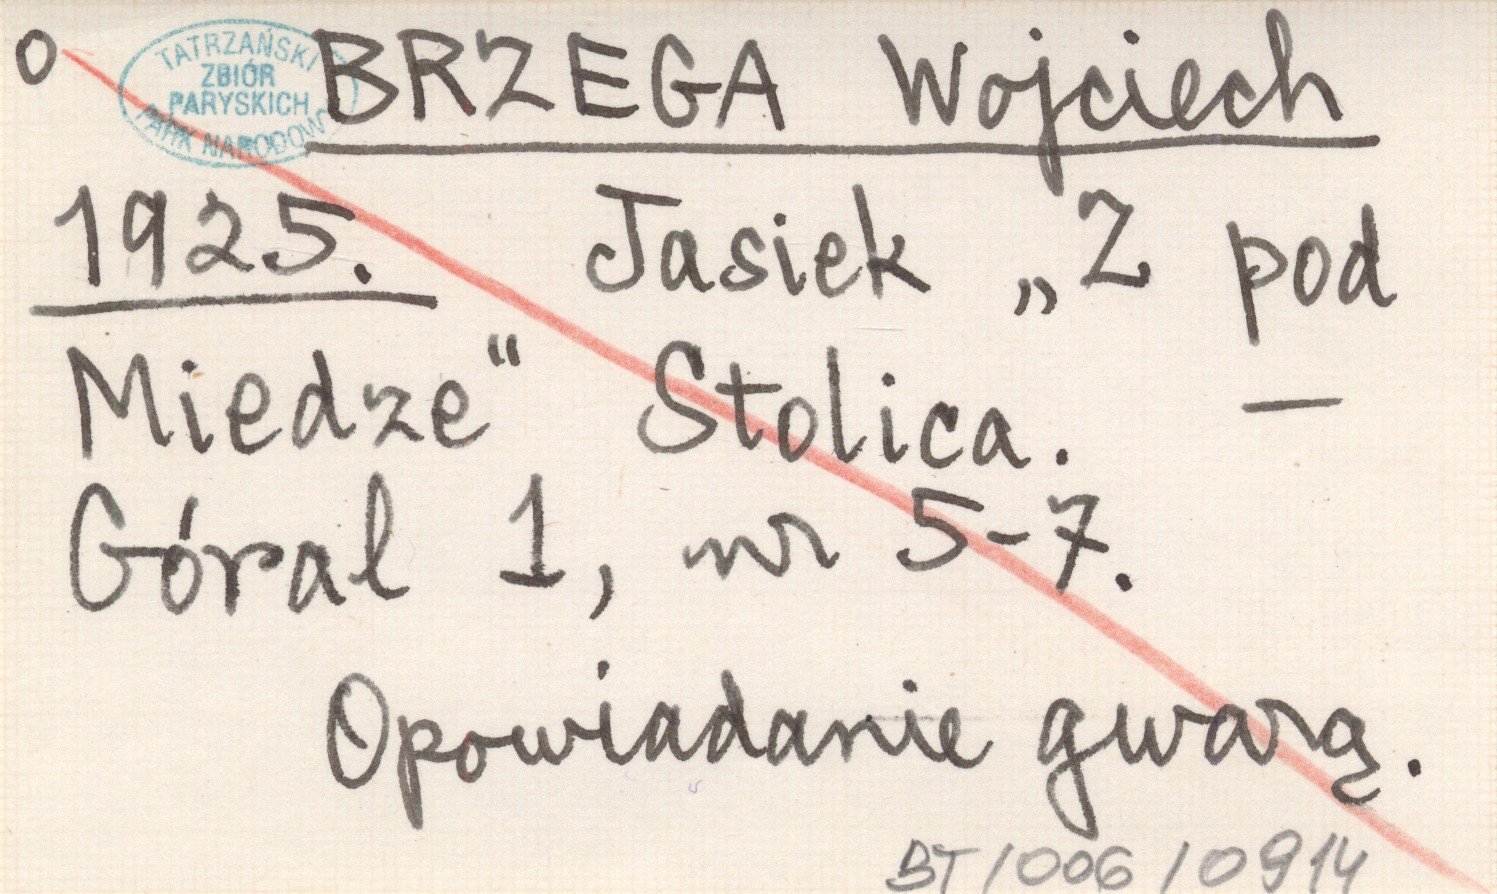 O
TATRZAŃSKI
ZBIÓR
PARYSKICH
PARK NARODOWY
BRZEGA Wojciech
1925. Jasiek „Z pod
Miedze" Stolica. —
Góral 1, nr 5-7.
Opowiadanie gwarą.
BT/006/0914